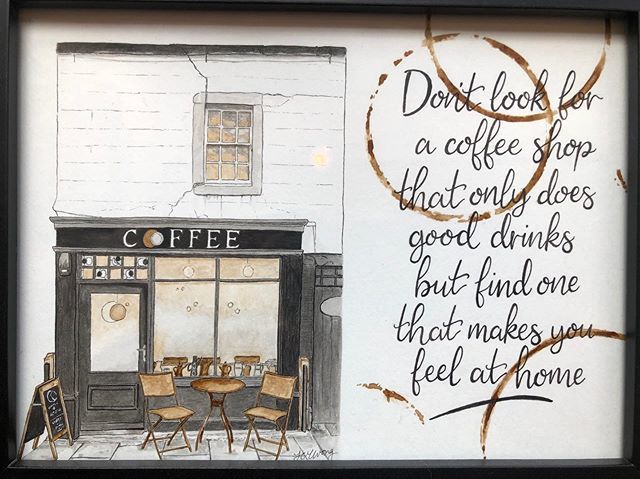 COFFEE
Don't look for
a coffee shop
that only does
good drinks
but find one
that makes you
feel at home